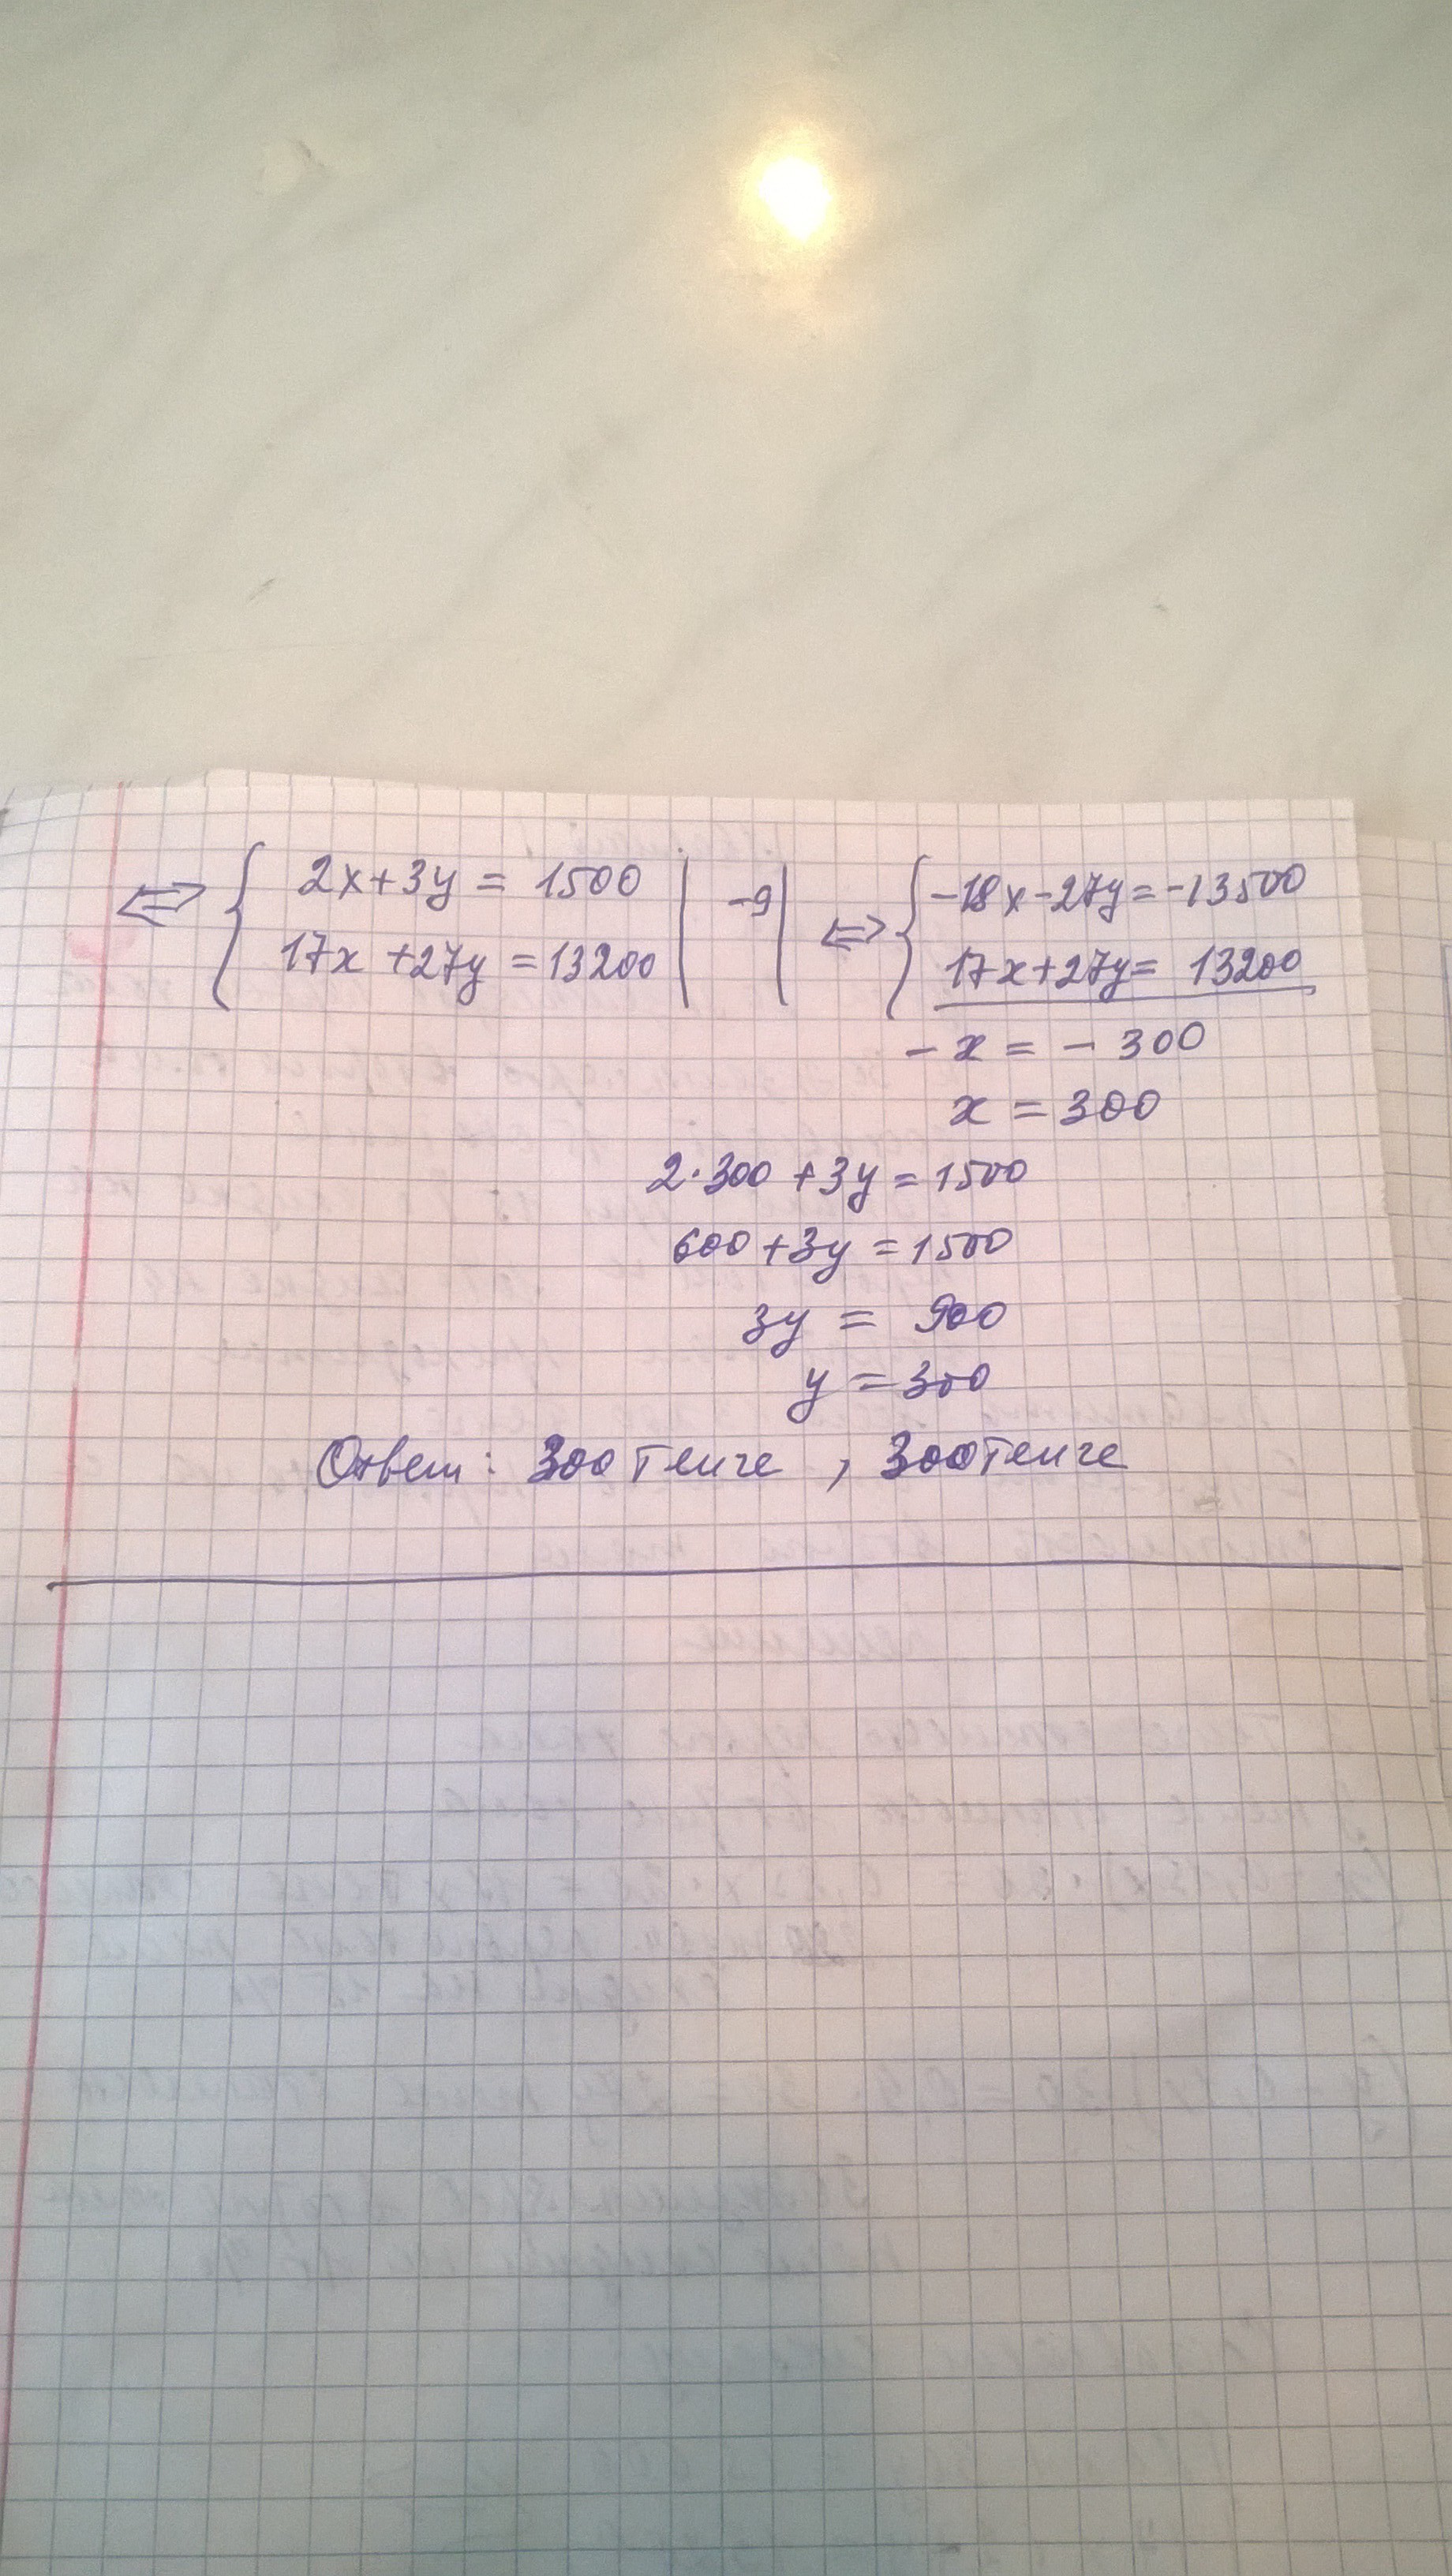 ⇔ { 2x+3y = 1500 | -9 | ⇔ { -18x-27y=-13500
17x+27y=13200 17x+27y= 13200
- x = - 300
x = 300
2·300+3y=1500
600+3y=1500
3y = 900
y = 300
Ответ: 300 тенге , 300 тенге